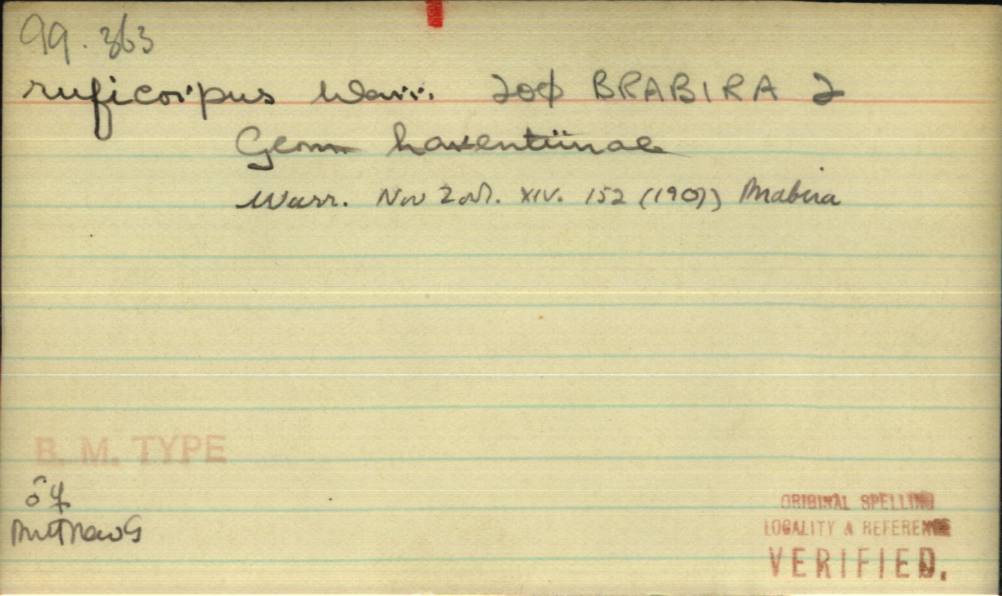 99.363
ruficorpus Warr. BRABIRA 2
Geom larentiinae
Warr. Nov Zool. XIV. 152 (1907) Mabira
B. M. TYPE
♂♀
ORIGINAL SPELLING
LOCALITY & REFERENCE
VERIFIED.